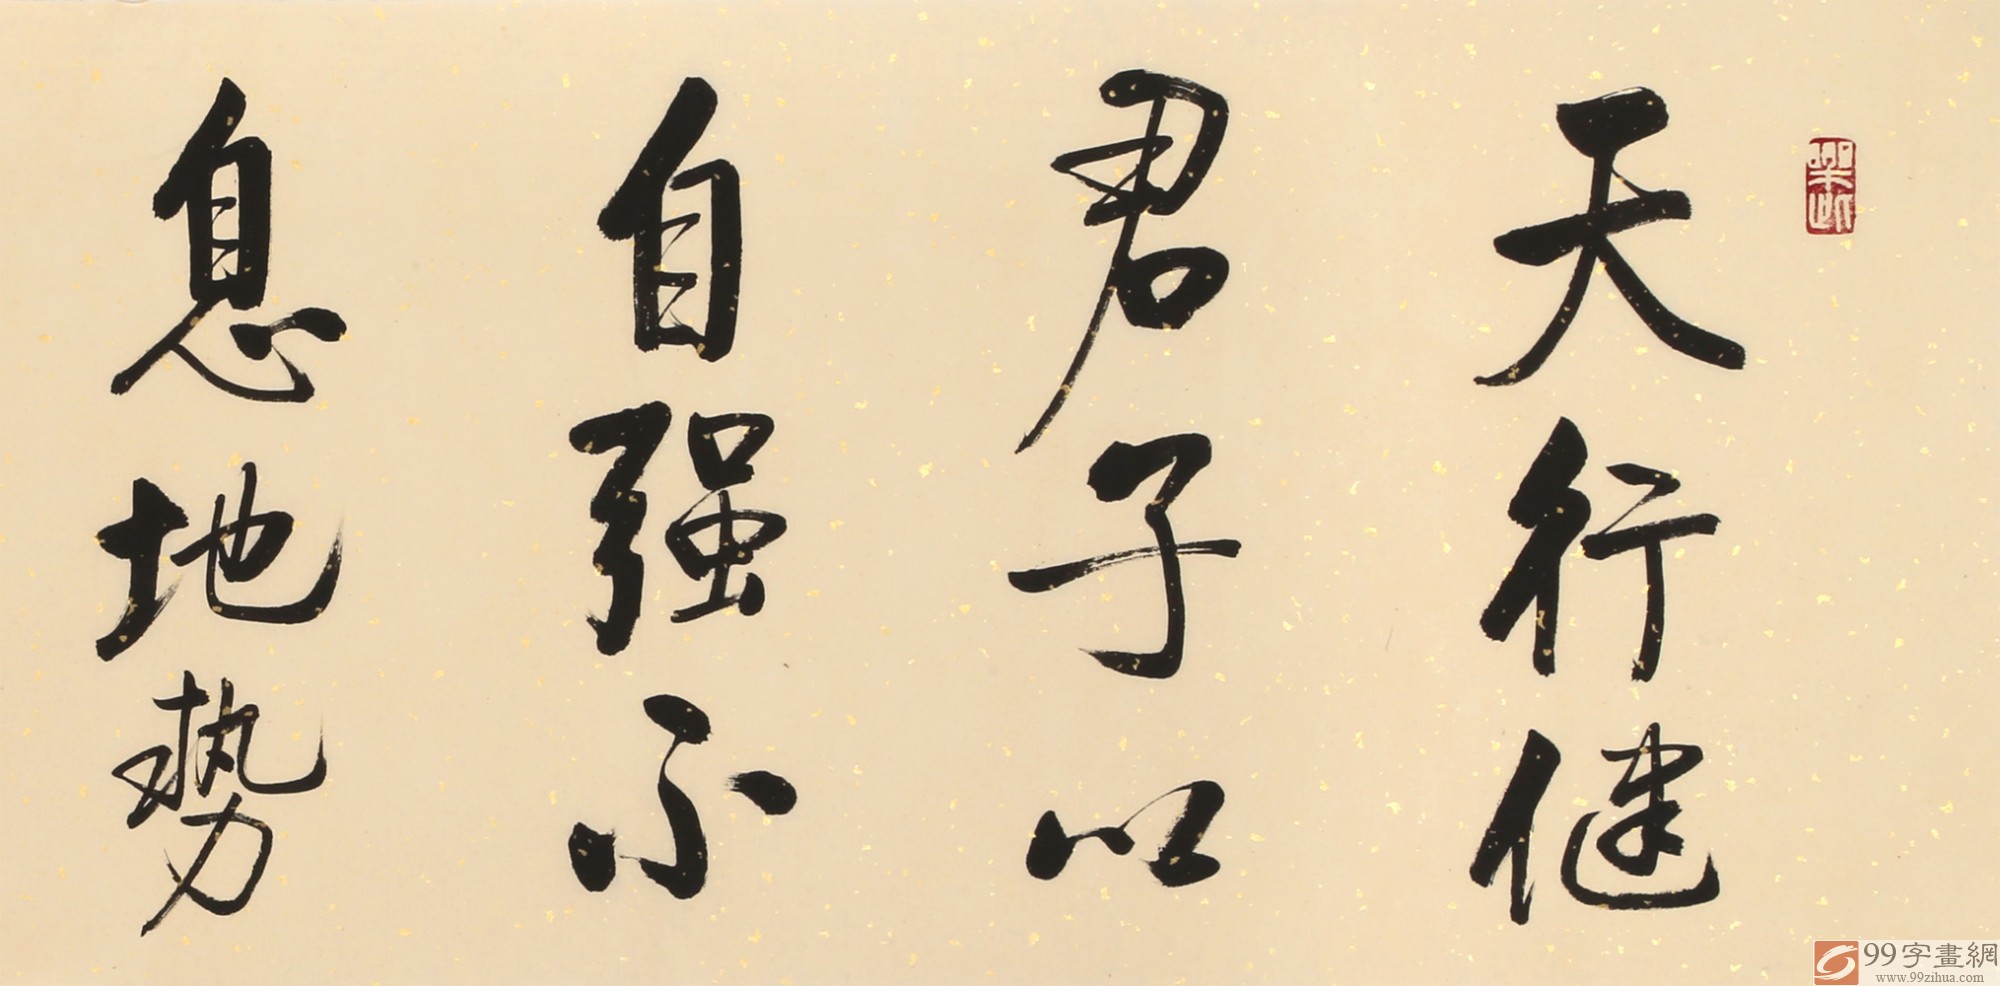 天行健
君子以
自强不
息地势
99字畫網
www.99zihua.com